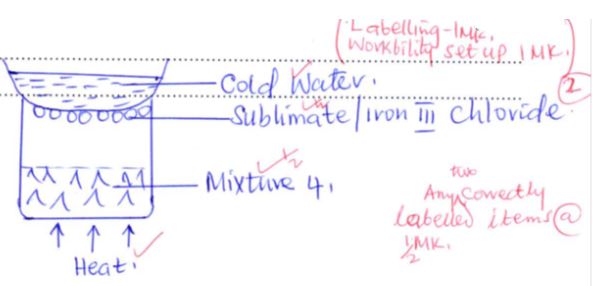 Labelling-1Mk.
Workbility set up 1 MK.
2
Cold Water.
Sublimate/iron III chloride
½
Mixture 4.
two
Any correctly
labelled items @
½MK.
Heat.